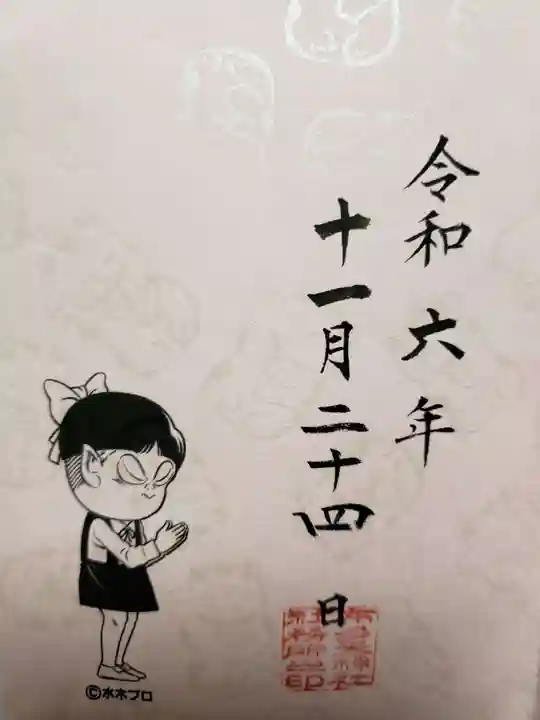 令和六年
十一月二十四日
©水木プロ